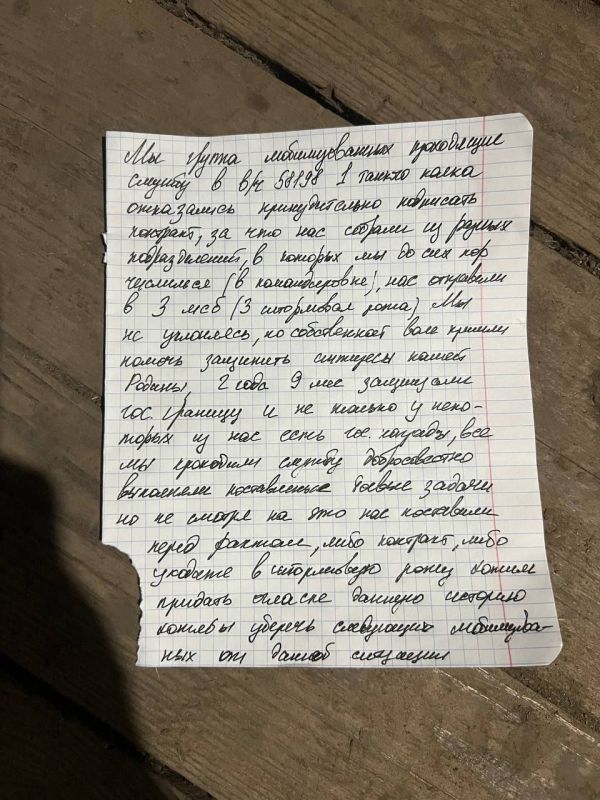 Мы группа мобилизованных проходящие
службу в в/ч 58198 1 танкго полка
отказались принудительно подписать
контракт, за что нас собрали из разных
подразделений, в которых мы до сих пор
числимся (в командировке), нас отправили
в 3 мсб (3 штормовая рота) Мы
не уклонялесь, по собственной воле пришли
помочь защитить интересы нашей
Родины, 2 года 9 мес защищали
гос. границу и не только у неко-
торых из нас есть гос. награды, все
мы проходили службу добросовестно
выполняли поставленые боевые задачи
но не смотря на это нас поставили
перед фактом, либо контракт, либо
уходите в штормовую роту хотим
придать огласке данную историю
хотябы уберечь следующих мобилизова-
ных от данной ситуации